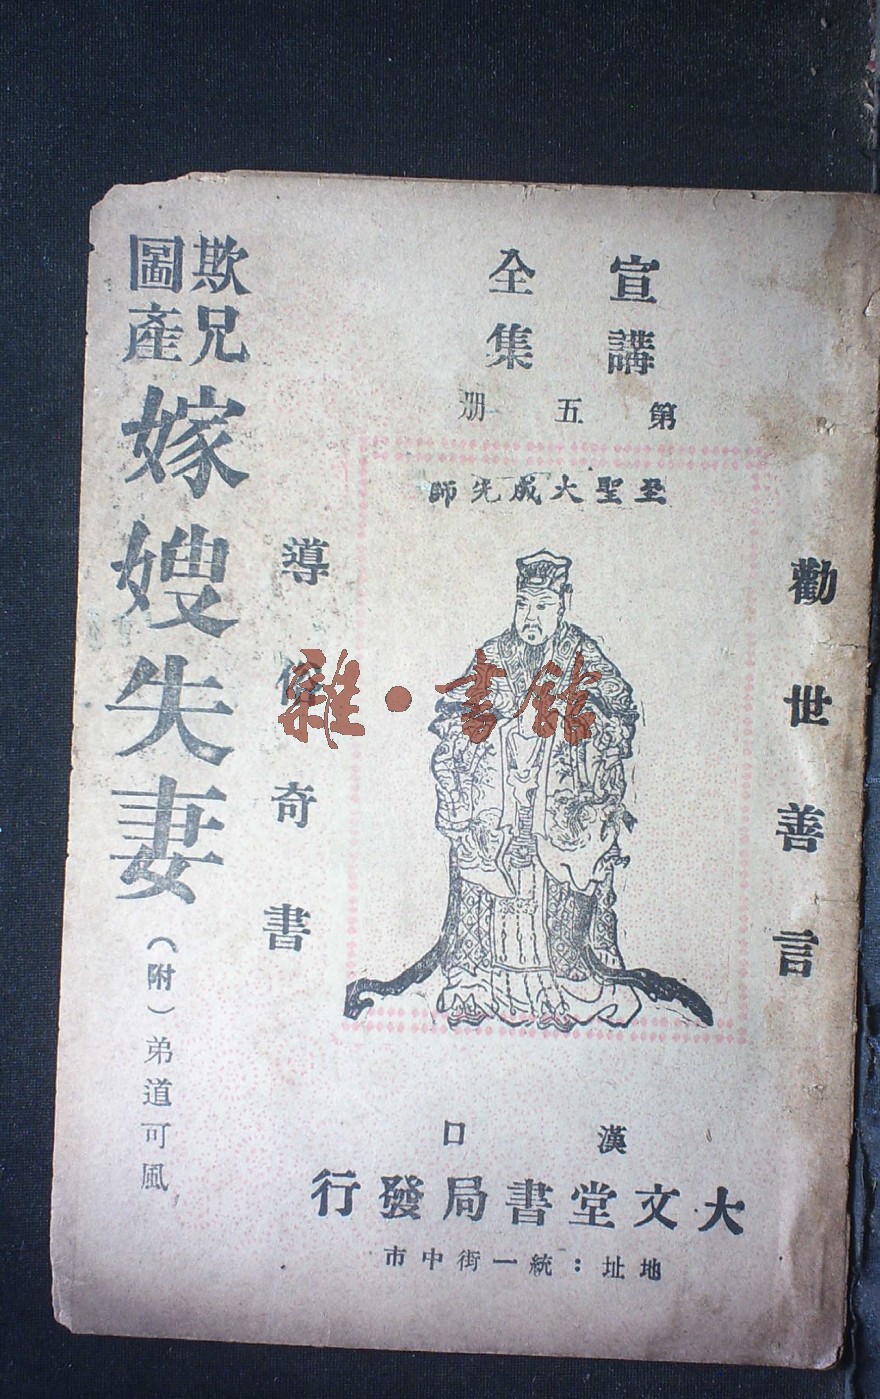 宣講
全集
第五册
至聖大成先師
勸世善言
導俗奇書
欺兄
圖產
嫁嫂失妻
（附）弟道可風
漢口
大文堂書局發行
地址：統一街中市
雜·書館